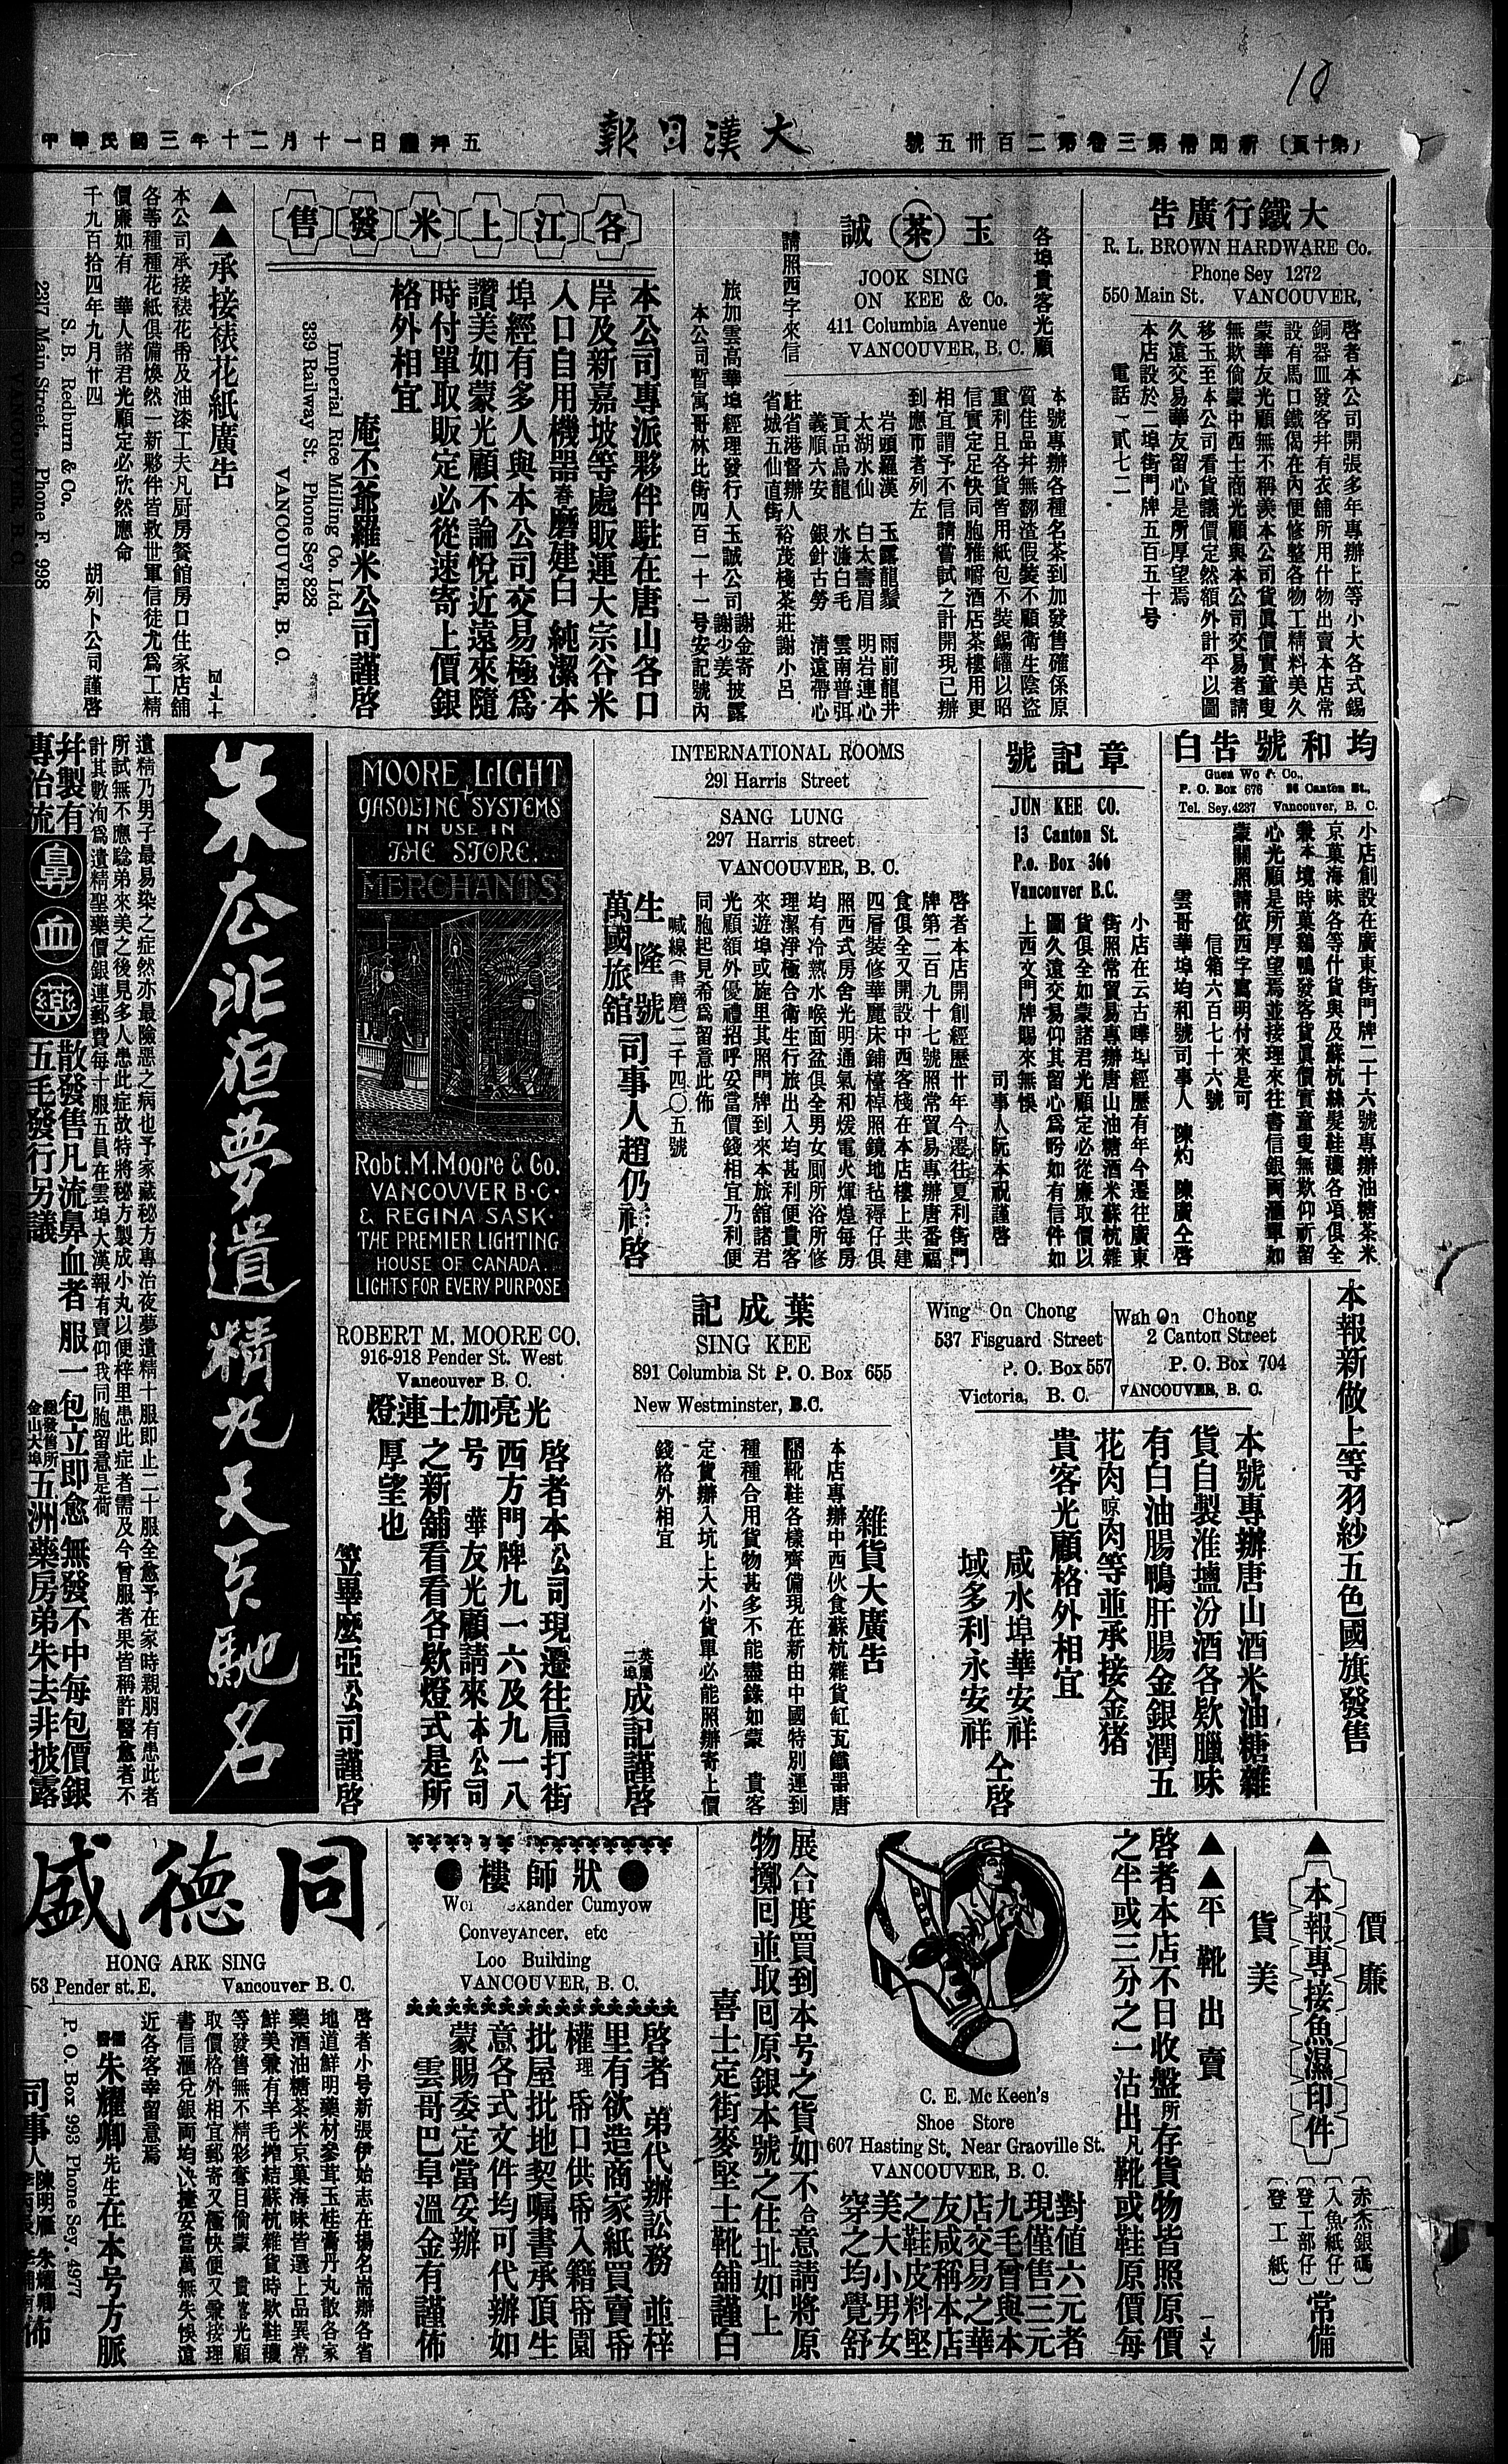 10
（第十頁） 新聞帋第三卷第二百卅五號
大漢日報
中華民國三年十二月十一日禮拜五
大鐵行廣告
R. L. BROWN HARDWARE Co.
Phone Sey 1272
550 Main St. VANCOUVER,
啓者本公司開張多年專辦上等小大各式錫
銅器皿發客幷有衣舖所用什物出賣本店常
設有馬口鐵偈在內便修整各物工精料美久
蒙華友光顧無不稱羨本公司貨眞價實童叟
無欺倘蒙中西士商光顧與本公司交易者請
移玉至本公司看貨議價定然額外計平以圖
久遠交易華友留心是所厚望焉
本店設於二埠街門牌五百五十號
電話（貳七二
各埠貴客光顧
玉茶誠
JOOK SING
ON KEE & Co.
411 Columbia Avenue
VANCOUVER, B. C.
請照西字來信
本號專辦各種名茶到加發售確係原
質佳品幷無翻渣假裝不顧衛生陰盜
重利且各貨皆用紙包不裝錫罐以昭
信實定足快同胞雅嚼酒店茶樓用更
相宜謂予不信請嘗試之計開現已辦
到應市者列左
岩頭羅漢 玉露龍鬚 雨前龍井
太湖水仙 白太壽眉 明岩連心
貢品烏龍 水濂白毛 雲南普弭
義順六安 銀針古勞 淸遠帶心
駐省港督辦人 裕茂棧茶莊謝小呂
省城五仙直街
旅加雲高華埠經理發行人玉誠公司 謝金寄 謝少姜 披露
本公司暫寓哥林比街四百一十一号安記號內
各江上米發售
本公司專派夥伴駐在唐山各口
岸及新嘉坡等處販運大宗谷米
入口自用機器舂磨建白純潔本
埠經有多人與本公司交易極爲
讚美如蒙光顧不論悅近遠來隨
時付單取販定必從速寄上價銀
格外相宜
庵丕爺羅米公司謹啓
Imperial Rice Milling Co. Ltd.
339 Railway St. Phone Sey 828
VANCOUVER, B. C.
▲▲承接裱花紙廣告
本公司承接裱花帋及油漆工夫凡厨房餐館房口住家店舖
各等種種花紙俱備煥然一新夥伴皆救世軍信徒尤爲工精
價廉如有 華人諸君光顧定必欣然應命
千九百拾四年九月廿四 胡列卜公司謹啓
S. B. Redburn & Co.
2317 Main Street. Phone F. 998
VANCOUVER B C
均和號告白
Guen Wo & Co.,
P. O. Box 676 26 Canton St.,
Tel. Sey. 4237 Vancouver, B. C.
小店創設在廣東街門牌二十六號專辦油糖茶米
京菓海味各等什貨與及蘇杭絲髮鞋襪各項俱全
兼本境時菓鷄鴨發客貨眞價實童叟無欺仰祈留
心光顧是所厚望焉並接理來往書信銀両滙單如
蒙關照請依西字寫明付來是可
信箱六百七十六號
雲哥華埠均和號司事人 陳灼 陳廣仝啓
章記號
JUN KEE CO.
13 Canton St.
P.o. Box 366
Vancouver B.C.
小店在云古嘩埠經歷有年今遷往廣東
街照常貿易專辦唐山油糖酒米蘇杭雜
貨俱全如蒙諸君光顧定必從廉取價以
圖久遠交易仰其留心爲盼如有信件如
上西文門牌賜來無悞
司事人阮本祝謹啓
INTERNATIONAL ROOMS
291 Harris Street
SANG LUNG
297 Harris street
VANCOUVER, B. C.
啓者本店開創經歷廿年今遷往夏利街門
牌第二百九十七號照常貿易專辦唐番福
食俱全又開設中西客棧在本店樓上共建
四層裝修華麗床鋪檯棹照鏡地毡褥仔俱
照西式房舍光明通氣和煖電火煇煌每房
均有冷熱水喉面盆俱全男女厠所浴所修
理潔淨極合衛生行旅出入均甚利便貴客
來遊埠或旋里其照門牌到來本旅舘諸君
光顧額外優禮招呼妥當價錢相宜乃利便
同胞起見希爲留意此佈
喊線（書磨）二千四〇五號
生隆號
萬國旅舘 司事人趙仍祥啓
MOORE LIGHT
GASOLINE SYSTEMS
IN USE IN
THE STORE.
MERCHANTS
Robt. M. Moore & Co.
VANCOUVER B.C.
& REGINA SASK.
THE PREMIER LIGHTING
HOUSE OF CANADA.
LIGHTS FOR EVERY PURPOSE
ROBERT M. MOORE CO.
916-918 Pender St. West
Vancouver B. C.
光亮加士連燈
啓者本公司現遷往扁打街
西方門牌九一六及九一八
号 華友光顧請來本公司
之新舖看看各欵燈式是所
厚望也
笠畢麽亞公司謹啓
朱去非夜夢遺精丸天下馳名
遺精乃男子最易染之症然亦最險惡之病也予家藏秘方專治夜夢遺精十服即止二十服全愈予在家時親朋有患此者
所試無不應騐弟來美之後見多人患此症故特將秘方製成小丸以便梓里患此症者需及今曾服者果皆稱許醫愈者不
計其數洵爲遺精聖藥價銀連郵費每十服五員在雲埠大漢報有賣仰我同胞留意是荷
幷製有專治流鼻血藥散發售凡流鼻血者服一包立即愈無發不中每包價銀
五毛發行另議
總發售所金山大埠五洲藥房弟朱去非披露
本報新做上等羽紗五色國旗發售
Wing On Chong
537 Fisguard Street
P. O. Box 557
Victoria, B. C.
Wah On Chong
2 Canton Street
P. O. Box 704
VANCOUVER, B. C.
本號專辦唐山酒米油糖雜
貨自製淮塩汾酒各欵臘味
有白油腸鴨肝腸金銀潤五
花肉晾肉等並承接金猪
貴客光顧格外相宜
咸水埠華安祥
域多利永安祥 仝啓
葉成記
SING KEE
891 Columbia St P. O. Box 655
New Westminster, B.C.
雜貨大廣告
本店專辦中西伙食蘇杭雜貨缸瓦鐵器唐
靴鞋各樣齊備現在新由中國特別運到
種種合用貨物甚多不能盡錄如蒙 貴客
定貨辦入坑上大小貨單必能照辦寄上價
錢格外相宜
英屬二埠成記謹啓
價廉
▲本報專接魚濕印件
貨美
（赤杰銀碼）
（入魚紙仔）
（登工部仔）
（登工紙）
常備
▲▲平靴出賣
啓者本店不日收盤所存貨物皆照原價
之半或三分之一沽出凡靴或鞋原價每
對值六元者
現僅售三元
九毛曾與本
店交易之華
友咸稱本店
之鞋皮料堅
美大小男女
穿之均覺舒
C. E. Mc Keen's
Shoe Store
607 Hasting St. Near Graoville St.
VANCOUVER, B. C.
展合度買到本号之貨如不合意請將原
物擲囘並取囘原銀本號之住址如上
喜士定街麥堅士靴舖謹白
狀師樓
Alexander Cumyow
Conveyancer, etc
Loo Building
VANCOUVER, B. C.
啓者 弟代辦訟務 並梓
里有欲造商家紙買賣帋
權理帋口供帋入籍帋園
批屋批地契嘱書承頂生
意各式文件均可代辦如
蒙賜委定當妥辦
雲哥巴阜溫金有謹佈
同德盛
HONG ARK SING
53 Pender st. E. Vancouver B. C.
啓者小号新張伊始志在揚名耑辦各省
地道鮮明藥材參茸玉桂膏丹丸散各家
藥酒油糖茶米京菓海味皆選上品異常
鮮美兼有羊毛搾結蘇杭雜貨時欵鞋襪
等發售無不精彩奪目倘蒙 貴客光顧
取價格外相宜郵寄又極快便又兼接理
書信滙兌銀両均辦捷妥當萬無失悞遠
近各客幸留意焉
儒醫朱耀卿先生在本号方脈
P. O. Box 993 Phone Sey. 4977
司事人陳明雁 朱耀卿